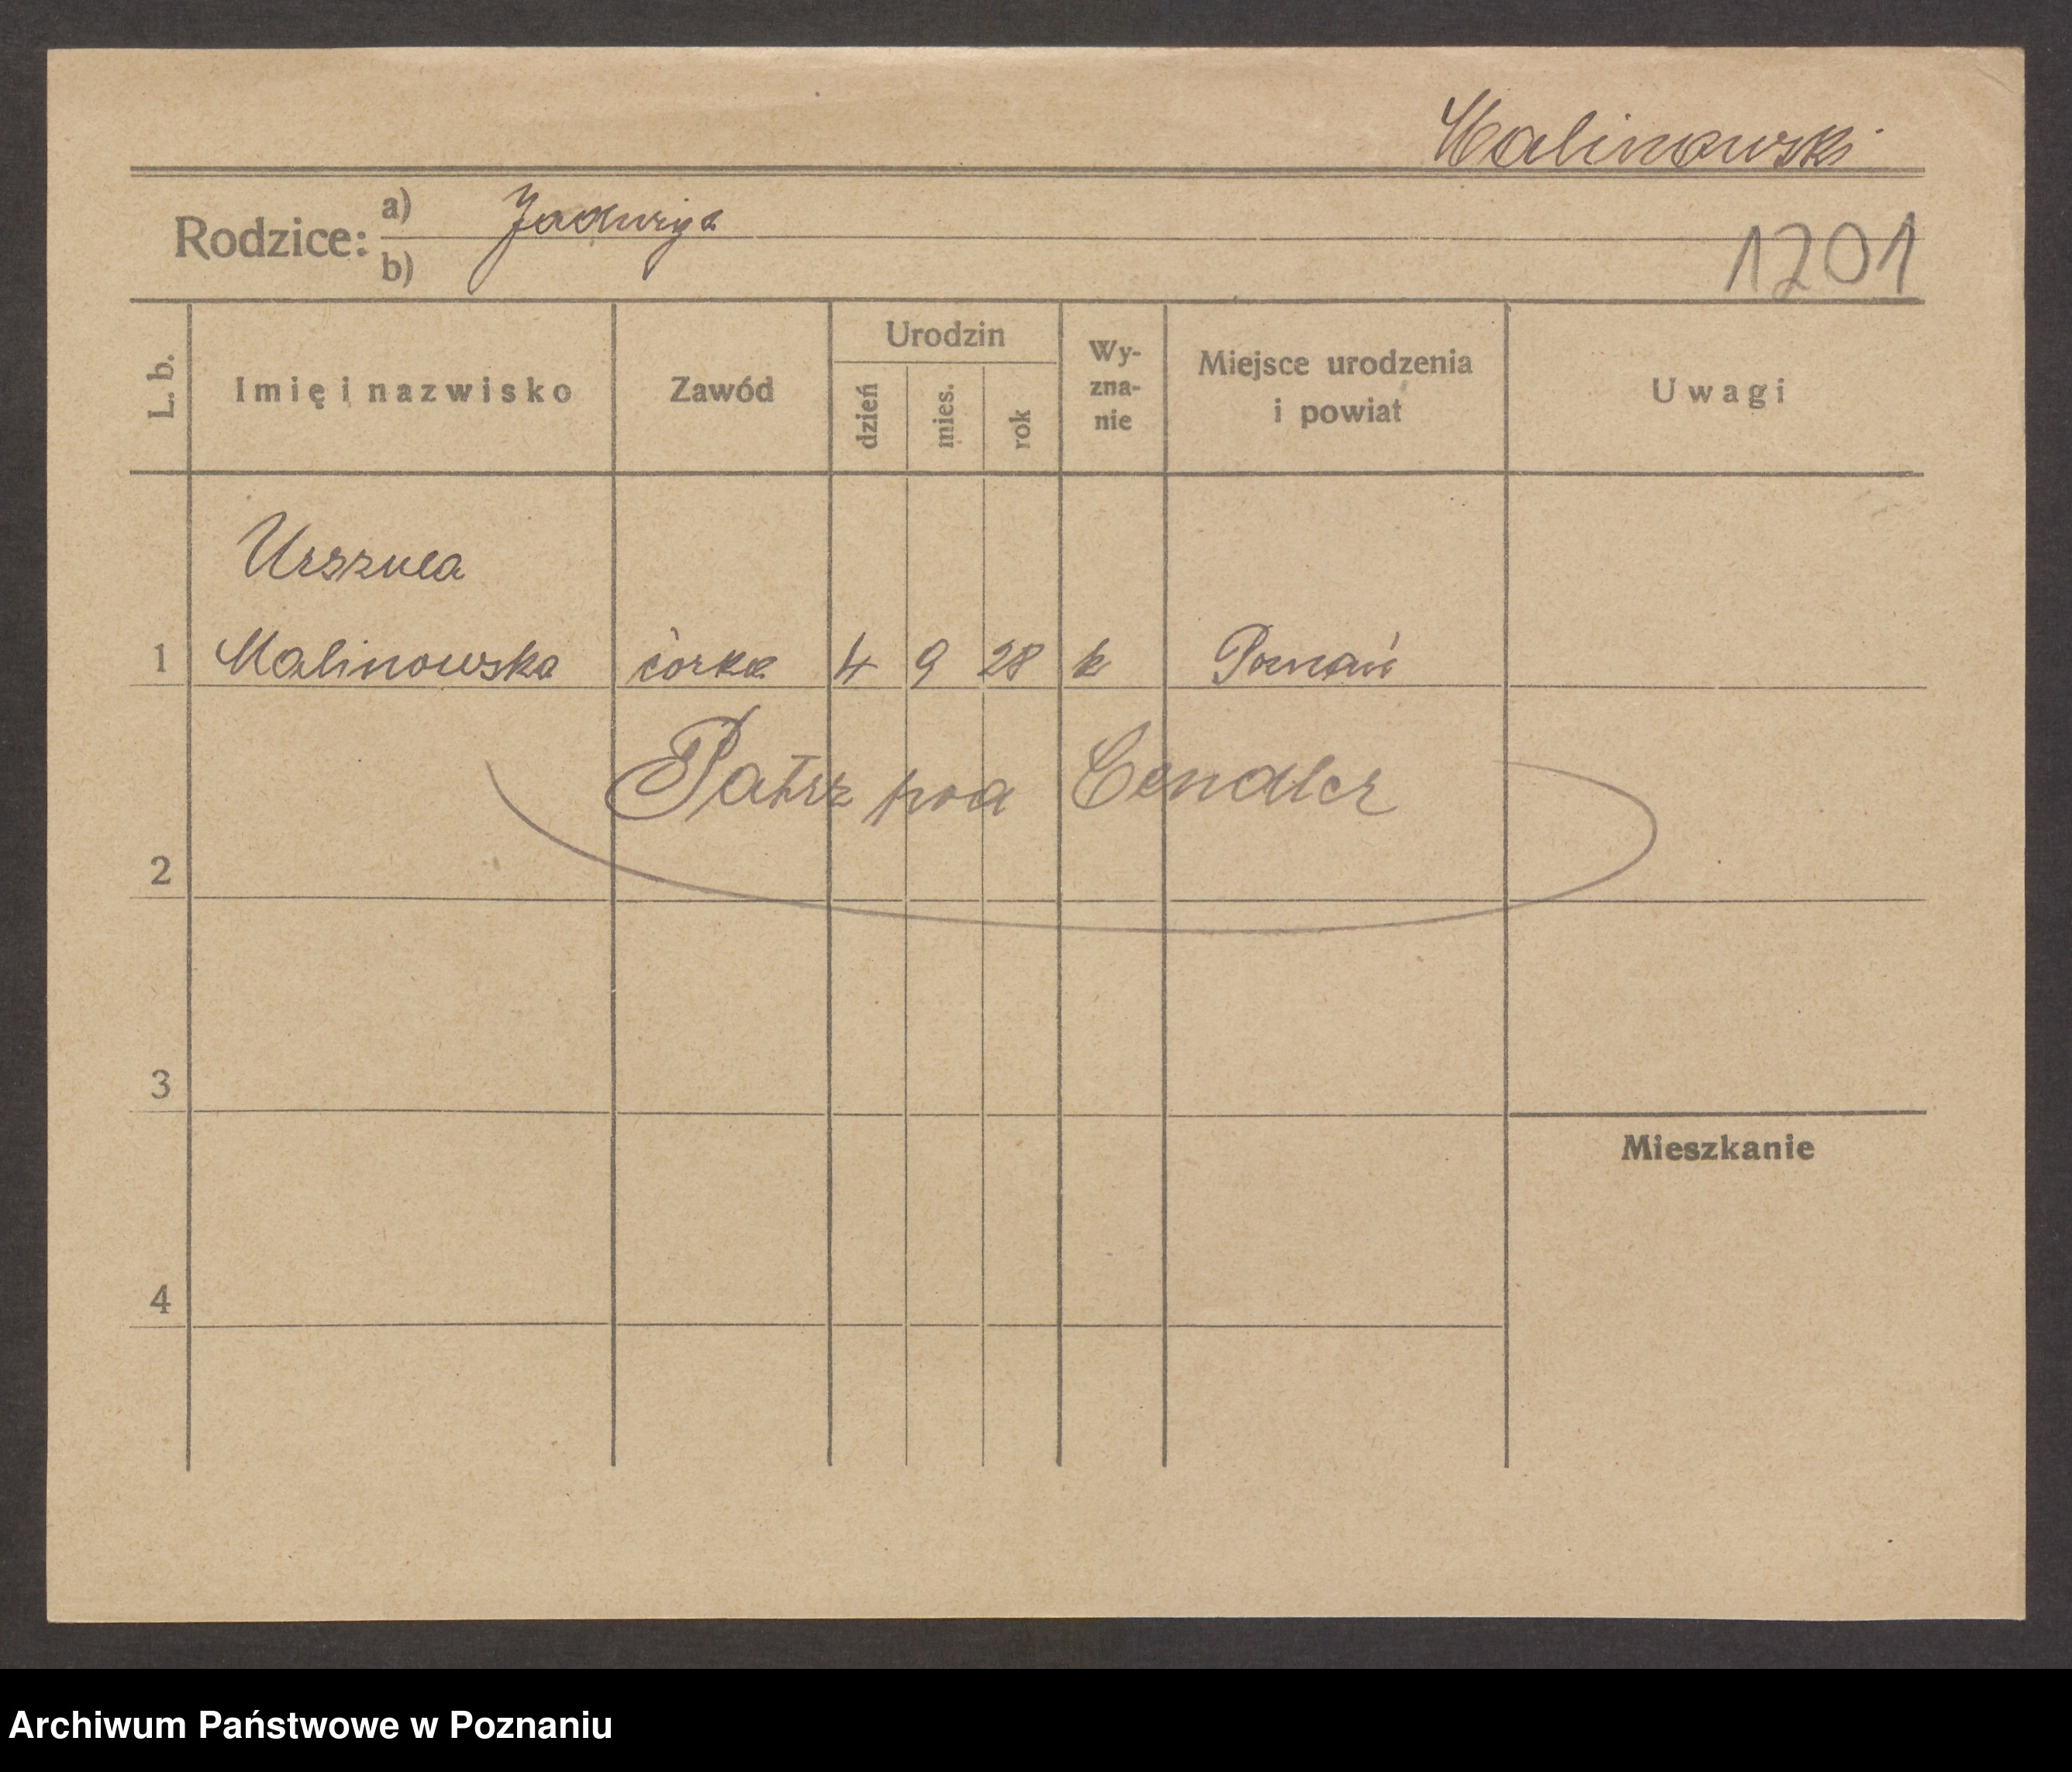 Malinowski
Rodzice: a) Jadwiga
b)
1201
L. b. Imię i nazwisko Zawód Urodzin dzień mies. rok Wy-zna-nie Miejsce urodzenia i powiat Uwagi
Urszula
1 Malinowska córka 4 9 28 k Poznań
Patrz pod Cendler
2
3
Mieszkanie
4
Archiwum Państwowe w Poznaniu